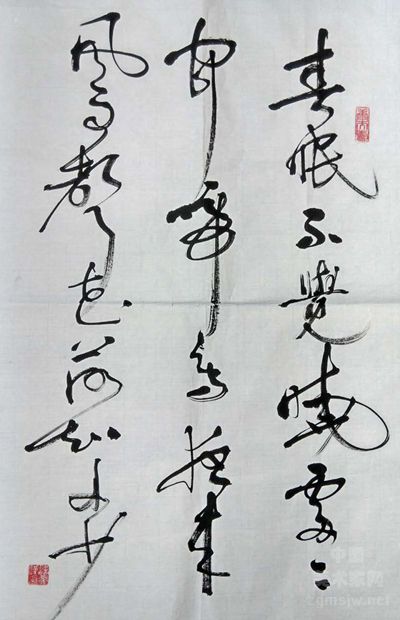 春眠不覺曉處々
聞啼鳥夜来
風雨聲花落知多少
中国
美术家网
zgmsjw.net